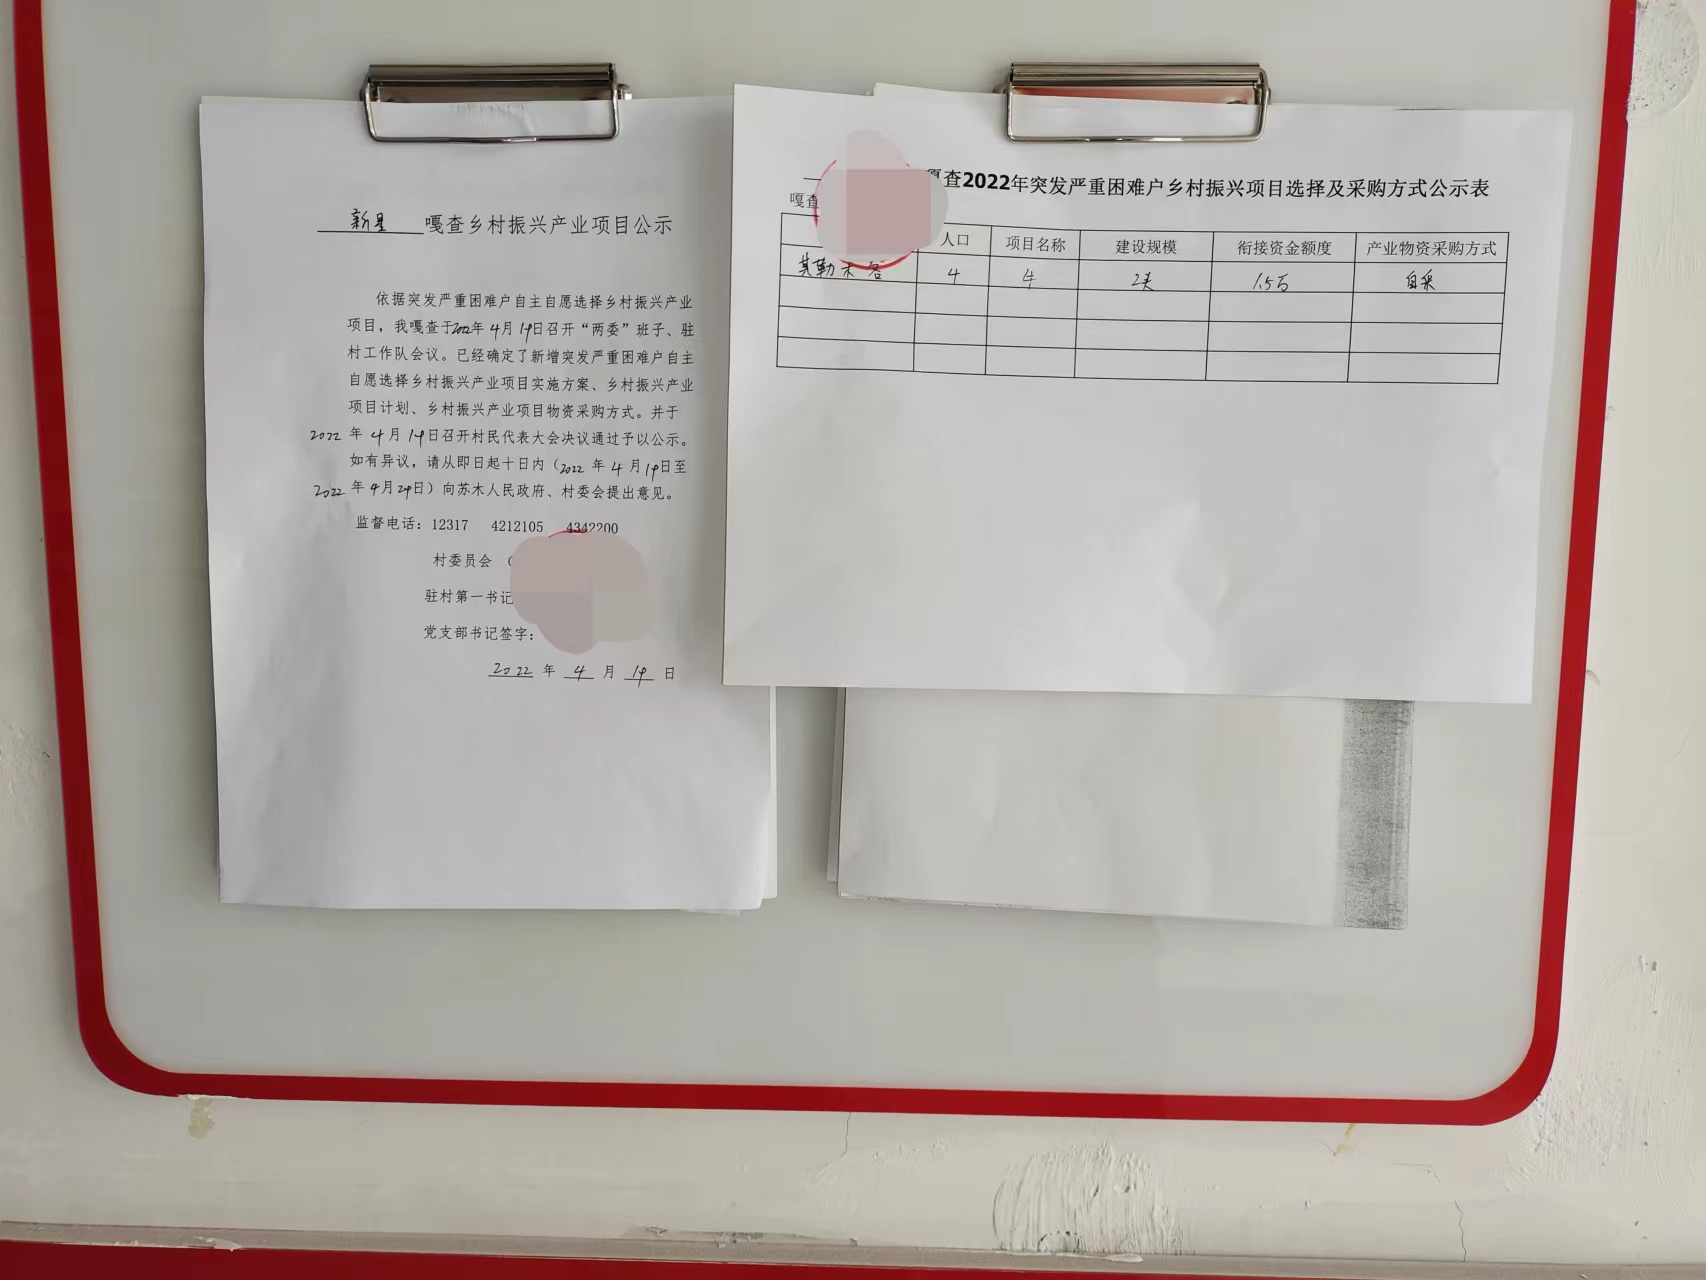 新星 嘎查乡村振兴产业项目公示
依据突发严重困难户自主自愿选择乡村振兴产业
项目，我嘎查于2022年4月19日召开“两委”班子、驻
村工作队会议。已经确定了新增突发严重困难户自主
自愿选择乡村振兴产业项目实施方案、乡村振兴产业
项目计划、乡村振兴产业项目物资采购方式。并于
2022 年 4 月 19日召开村民代表大会决议通过予以公示。
如有异议，请从即日起十日内（2022 年 4 月 19日至
2022 年4月29日）向苏木人民政府、村委会提出意见。
监督电话：12317 4212105 4342200
村委员会（
驻村第一书记
党支部书记签字：
2022 年 4 月 19 日
嘎查2022年突发严重困难户乡村振兴项目选择及采购方式公示表
嘎查
人口 项目名称 建设规模 衔接资金额度 产业物资采购方式
其勒木格 4 牛 2头 1.5万 自采